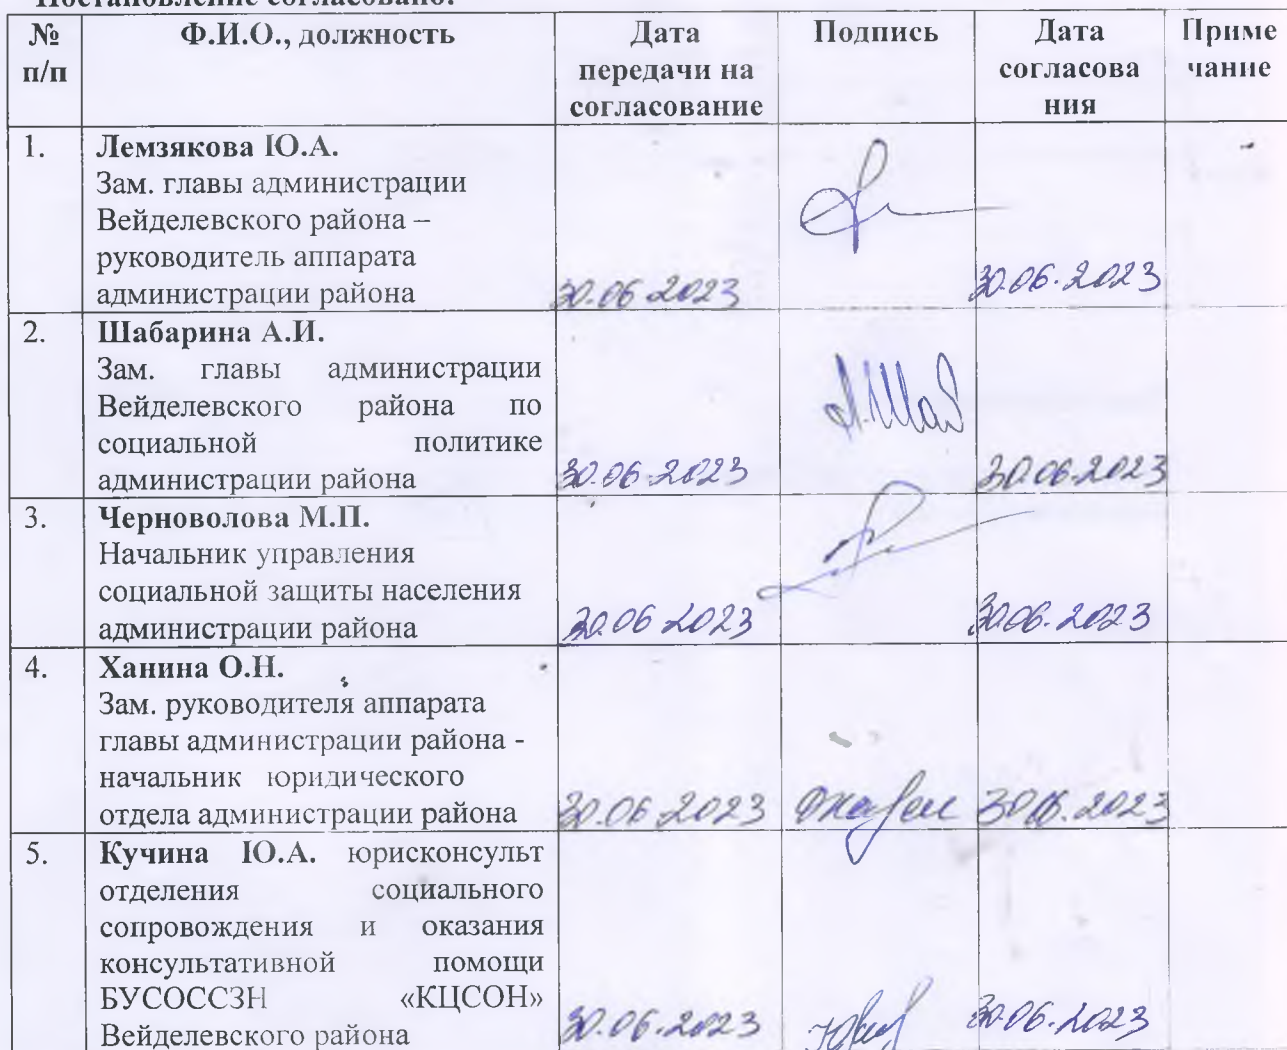 Постановление согласовано:
№ Ф.И.О., должность Дата Подпись Дата Приме
п/п передачи на согласова чание
согласование ния
1. Лемзякова Ю.А.
Зам. главы администрации
Вейделевского района –
руководитель аппарата
администрации района 30.06 2023 30.06.2023
2. Шабарина А.И.
Зам. главы администрации
Вейделевского района по
социальной политике
администрации района 30.06.2023 30.06.2023
3. Черноволова М.П.
Начальник управления
социальной защиты населения
администрации района 30.06 2023 30.06.2023
4. Ханина О.Н.
Зам. руководителя аппарата
главы администрации района -
начальник юридического
отдела администрации района 30.06.2023 30.06.2023
5. Кучина Ю.А. юрисконсульт
отделения социального
сопровождения и оказания
консультативной помощи
БУСОССЗН «КЦСОН»
Вейделевского района 30.06.2023 30.06.2023